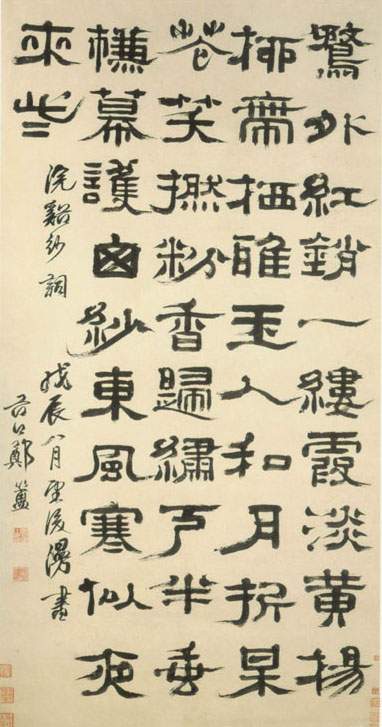 鶩外紅銷一縷霞淡黃楊
桺帶栖雅玉人和月折呆
花笑撚粉香歸繡戶半垂
幕護囪紗東風寒似夜
來些
浣谿紗詞 戊辰八月望後漫書
谷口鄭簠